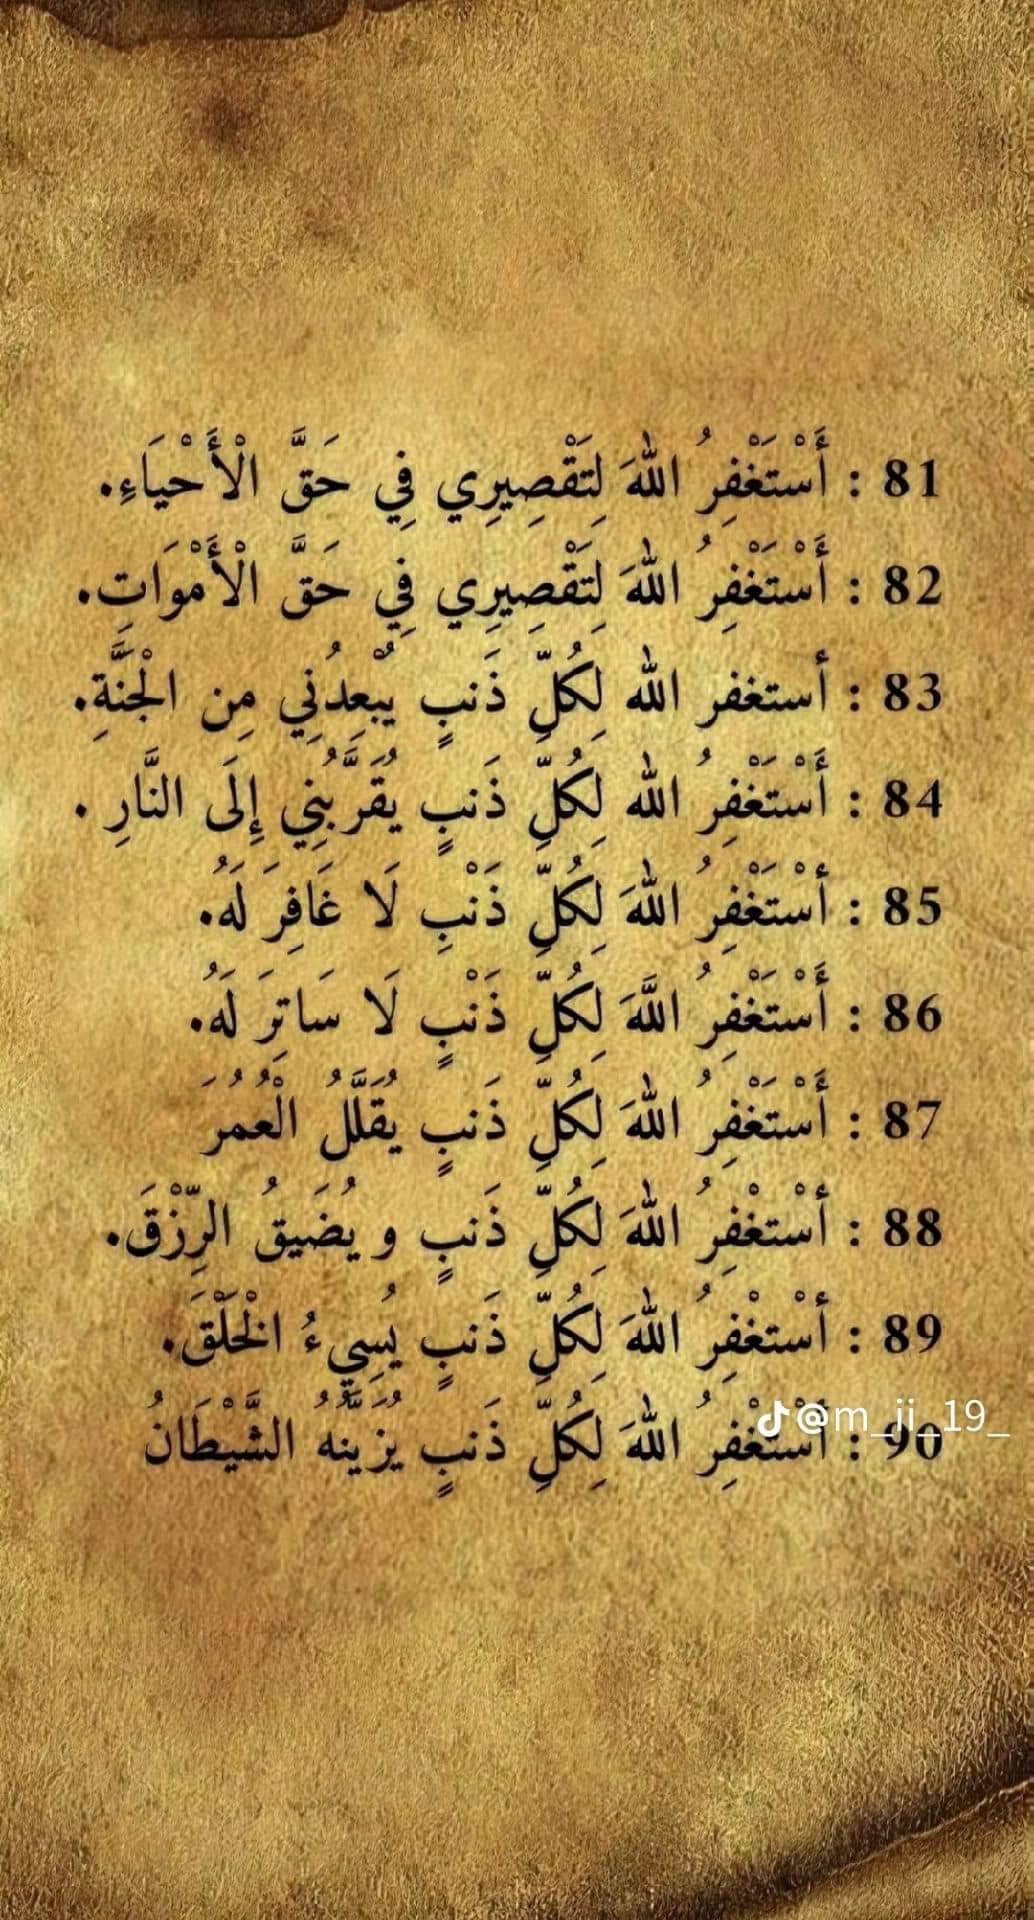 81 : أَسْتَغْفِرُ اللهَ لِتَقْصِيرِي فِي حَقَّ الْأَحْيَاءِ.
82 : أَسْتَغْفِرُ اللهَ لِتَقْصِيرِي فِي حَقَّ الْأَمْوَاتِ.
83 : أستغفر الله لِكُلِّ ذَنبٍ يُبْعِدُنِي مِن الْجَنَّةِ.
84 : أَسْتَغْفِرُ الله لِكُلِّ ذَنبٍ يُقَرَّبُنِي إِلَى النَّارِ .
85 : أسْتَغْفِرُ اللهَ لِكُلِّ ذَنْبٍ لَا غَافِرَ لَهُ.
86 : أَسْتَغْفِرُ اللَّهَ لِكُلِّ ذَنْبٍ لَا سَاتِرَ لَهُ.
87 : أَسْتَغْفِرُ اللهَ لِكُلِّ ذَنبٍ يُقَلَّلُ الْعُمُرَ
88 : أسْتغْفِرُ اللهَ لِكُلِّ ذَنبٍ و يُضَيقُ الرِّزْقَ.
89 : أسْتغْفِرُ اللهَ لِكُلِّ ذَنبٍ يُسِيءُ الْخَلْقَ.
90 : أسْتَغْفِرُ اللهَ لِكُلِّ ذَنبٍ يُزَيَّنُهُ الشَّيْطَانُ
@m_ji_19_